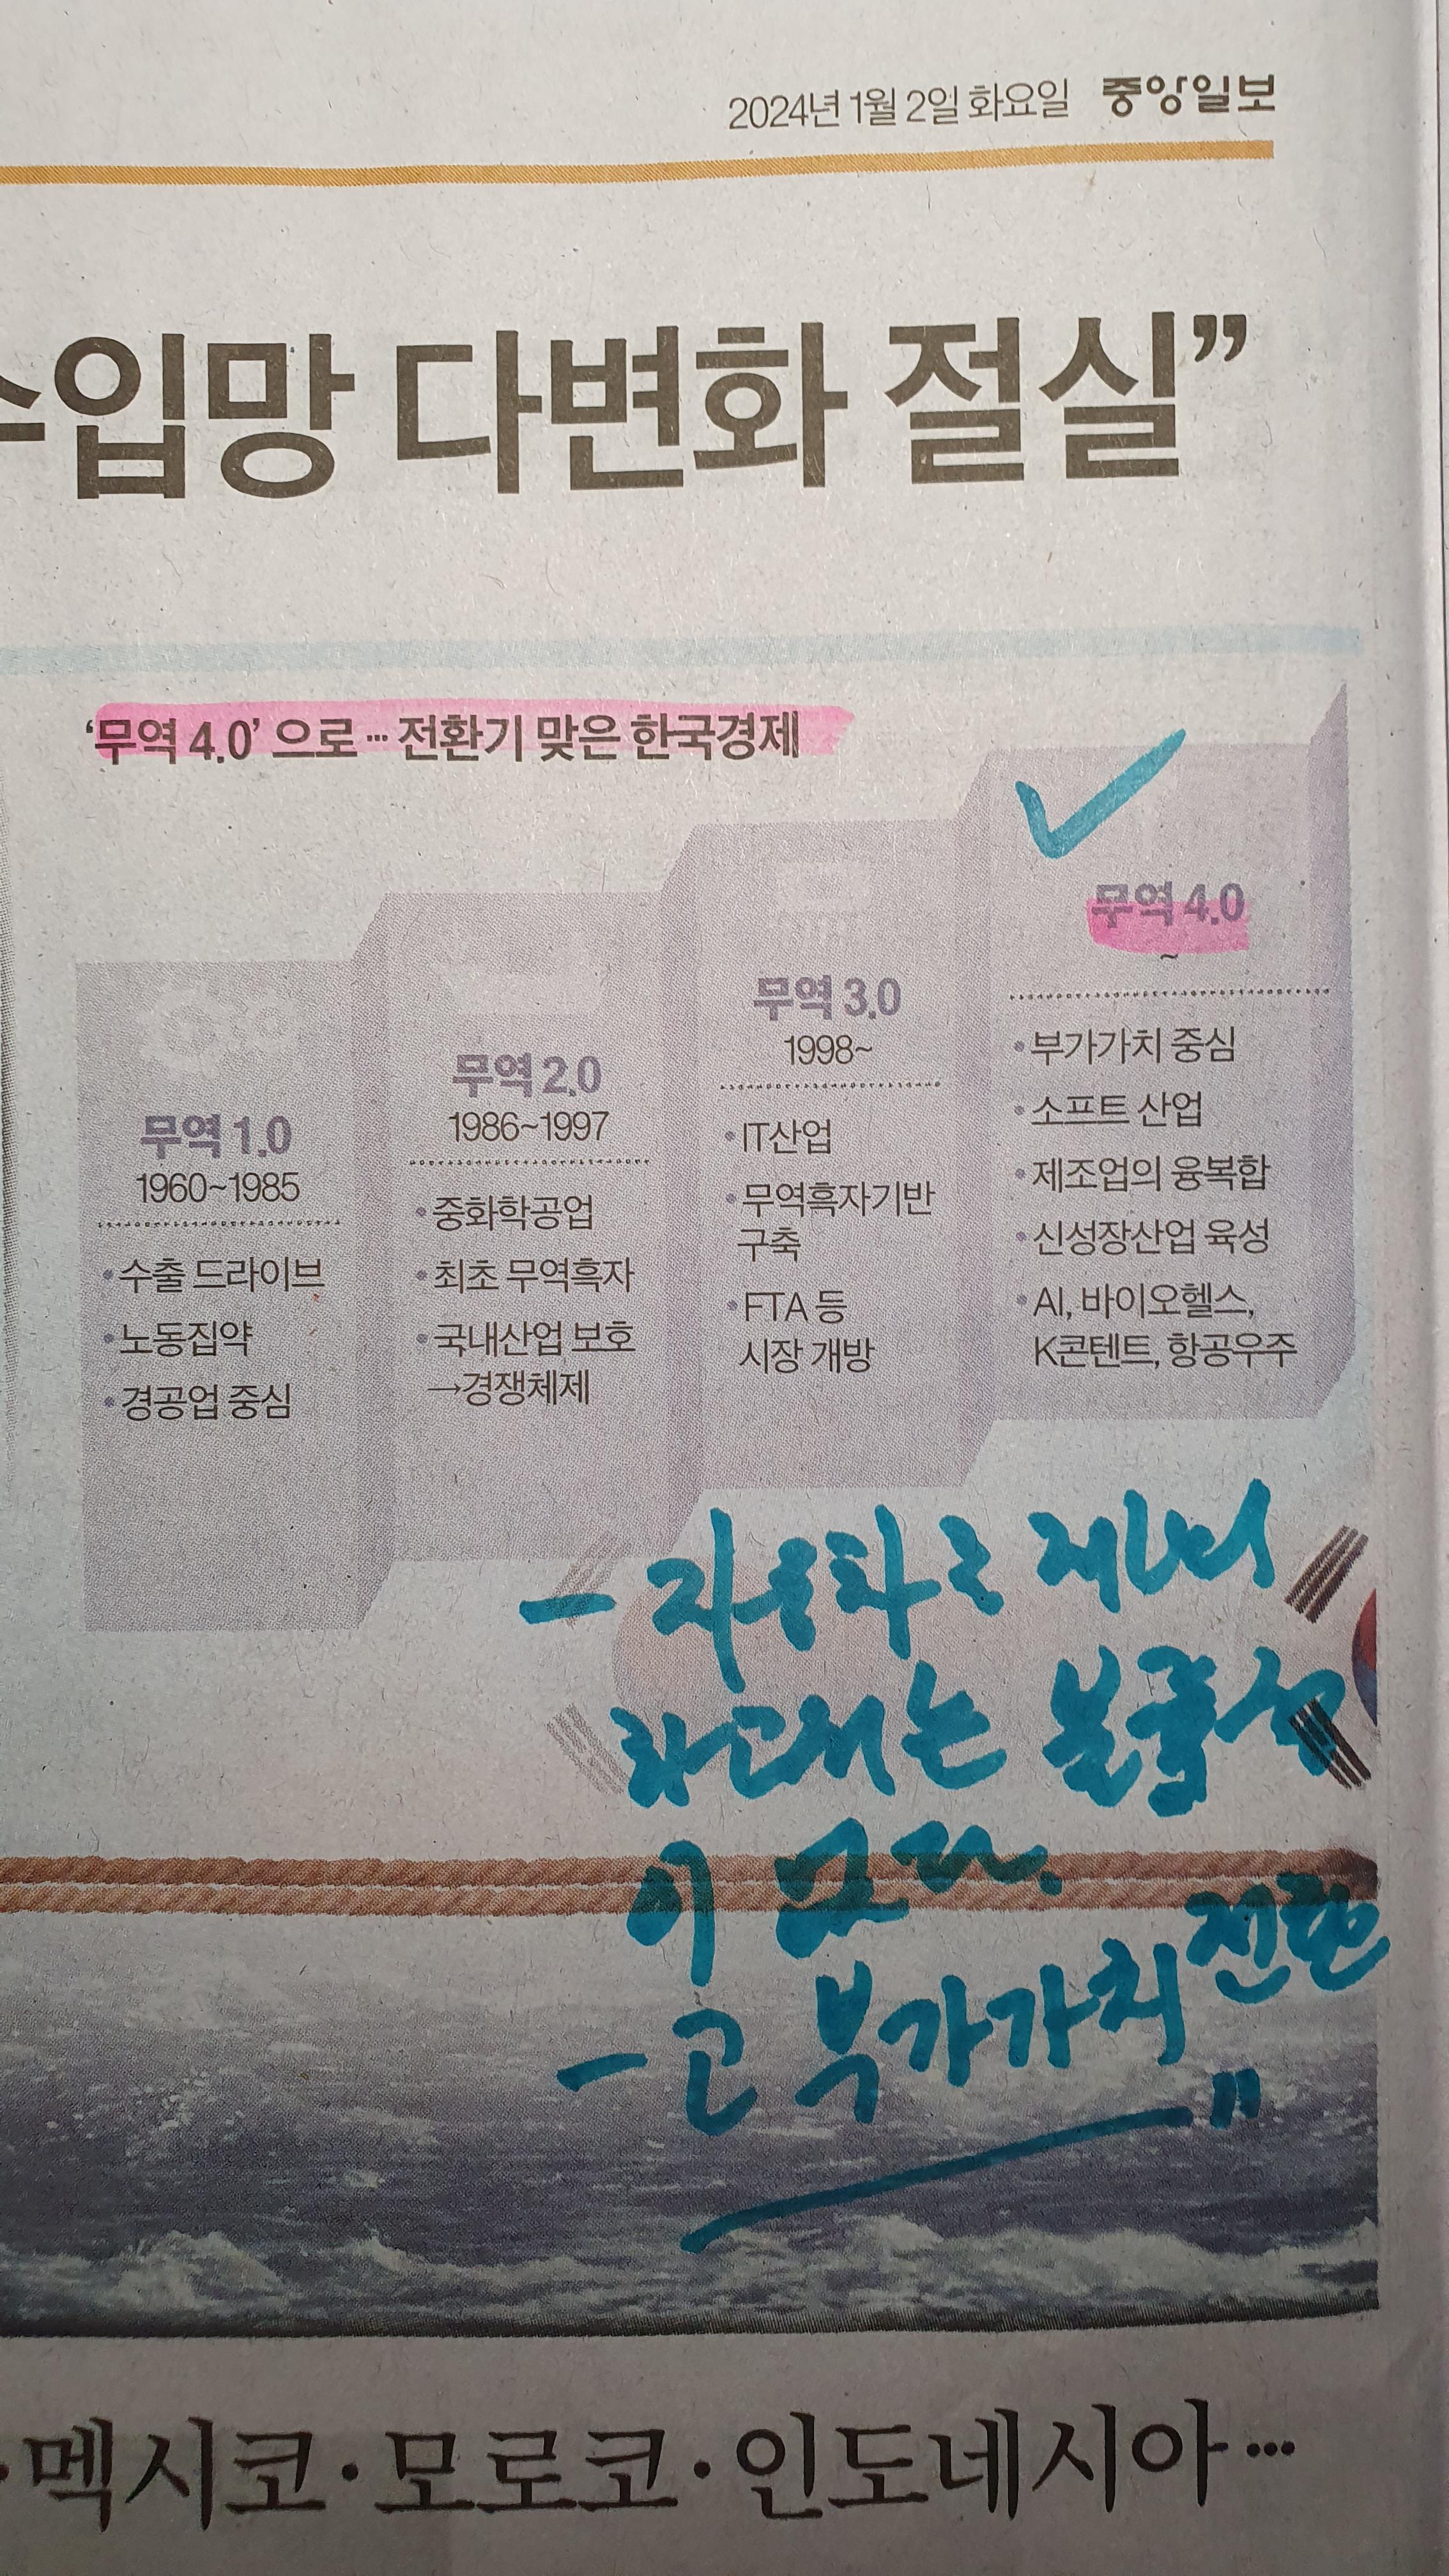 2024년 1월 2일 화요일 중앙일보
수입망 다변화 절실”
‘무역 4.0’으로… 전환기 맞은 한국경제
무역 1.0
1960~1985
•수출 드라이브
•노동집약
•경공업 중심
무역 2.0
1986~1997
•중화학공업
•최초 무역흑자
•국내산업 보호
→경쟁체제
무역 3.0
1998~
•IT산업
•무역흑자기반
구축
•FTA 등
시장 개방
무역 4.0
~
•부가가치 중심
•소프트 산업
•제조업의 융복합
•신성장산업 육성
•AI, 바이오헬스,
K콘텐트, 항공우주
이
- 고 부가가치 전환 "
·멕시코·모로코·인도네시아…